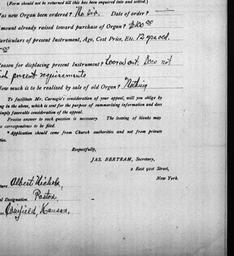 (Form should not to returned till this has been enquired into and settled.)
as new Organ been ordered? No Sir. Date of order?
amount already raised toward purchase of Organ? $600.00
Particulars of present Instrument, Age, Cost Price, Etc. 12 years.
Reason for displacing present Instrument? Worn out. Does not
present requirements
How much is to be realised by sale of old Organ? Nothing
To facilitate Mr. Carnegie's consideration of your appeal, will you oblige by
in the above, which is sent for the purpose of summarising information and does
imply favorable consideration of the appeal.
Precise answer to each question is necessary. The issuing of blanks may
correspondence to be filed.
* Application should come from Church authorities and not from private
Respectfully,
JAS. BERTRAM, Secretary,
2 East 91st Street,
New York.
Albert Nichols
Designation. Pastor
Kansas.